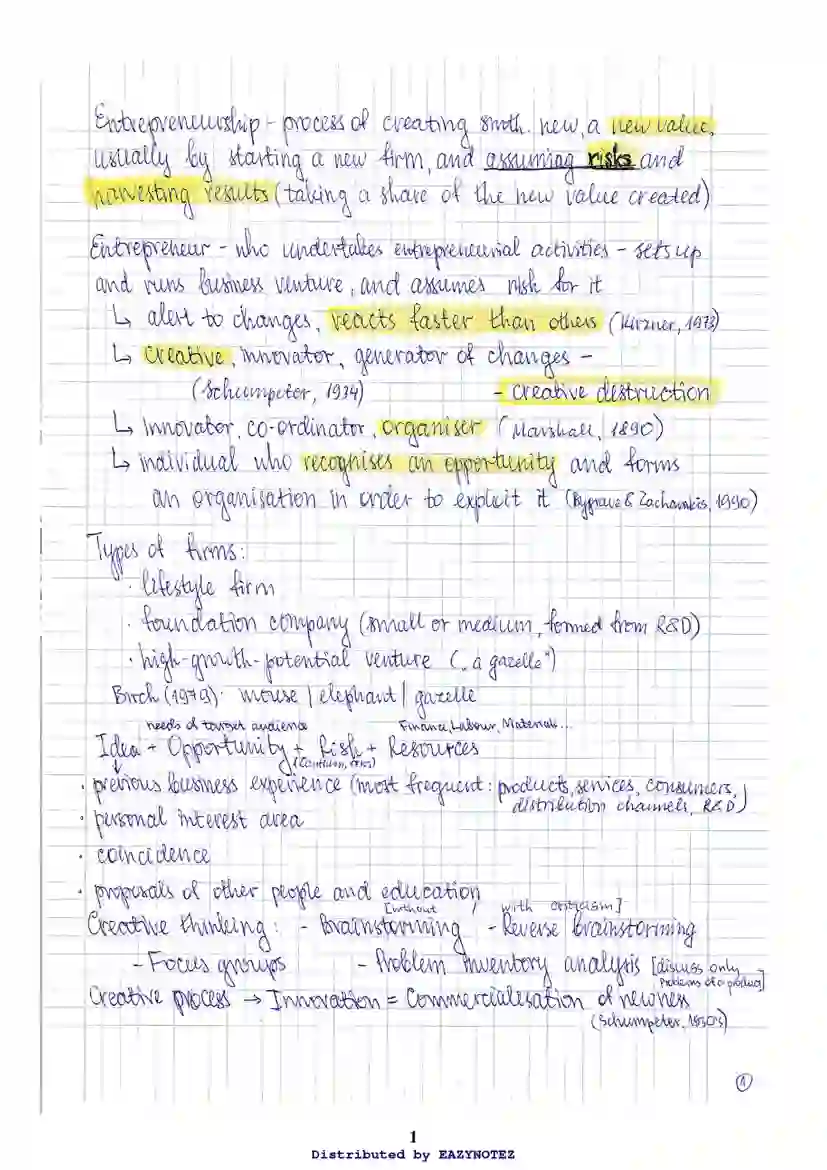 Entrepreneurship - process of creating smth. new, a new value,
usually by starting a new firm, and assuming risks and
harvesting results (taking a share of the new value created)
Entrepreneur - who undertakes entrepreneurial activities - sets up
and runs business venture, and assumes risk for it
↳ alert to changes, reacts faster than others (Kirzner, 1973)
↳ creative, innovator, generator of changes -
(Schumpeter, 1934) - creative destruction
↳ Innovator, co-ordinator, organiser (Marshall, 1890)
↳ individual who recognises an opportunity and forms
an organisation in order to exploit it (Bygrave & Zacharakis, 1990)
Types of firms:
· lifestyle firm
· foundation company (small or medium, formed from R&D)
· high-growth-potential venture („a gazelle")
Birch (1979): mouse | elephant | gazelle
needs of target audience Finance, Labour, Materials...
Idea + Opportunity + Risk + Resources
· previous business experience (most frequent: products, services, consumers,
distribution channels, R&D)
· personal interest area
· coincidence
· proposals of other people and education
[without / with criticism]
Creative thinking: - Brainstorming - Reverse brainstorming
- Focus groups - Problem inventory analysis [discuss only
problems of a product]
Creative process → Innovation = Commercialisation of newness
(Schumpeter,
1
1
Distributed by EAZYNOTEZ